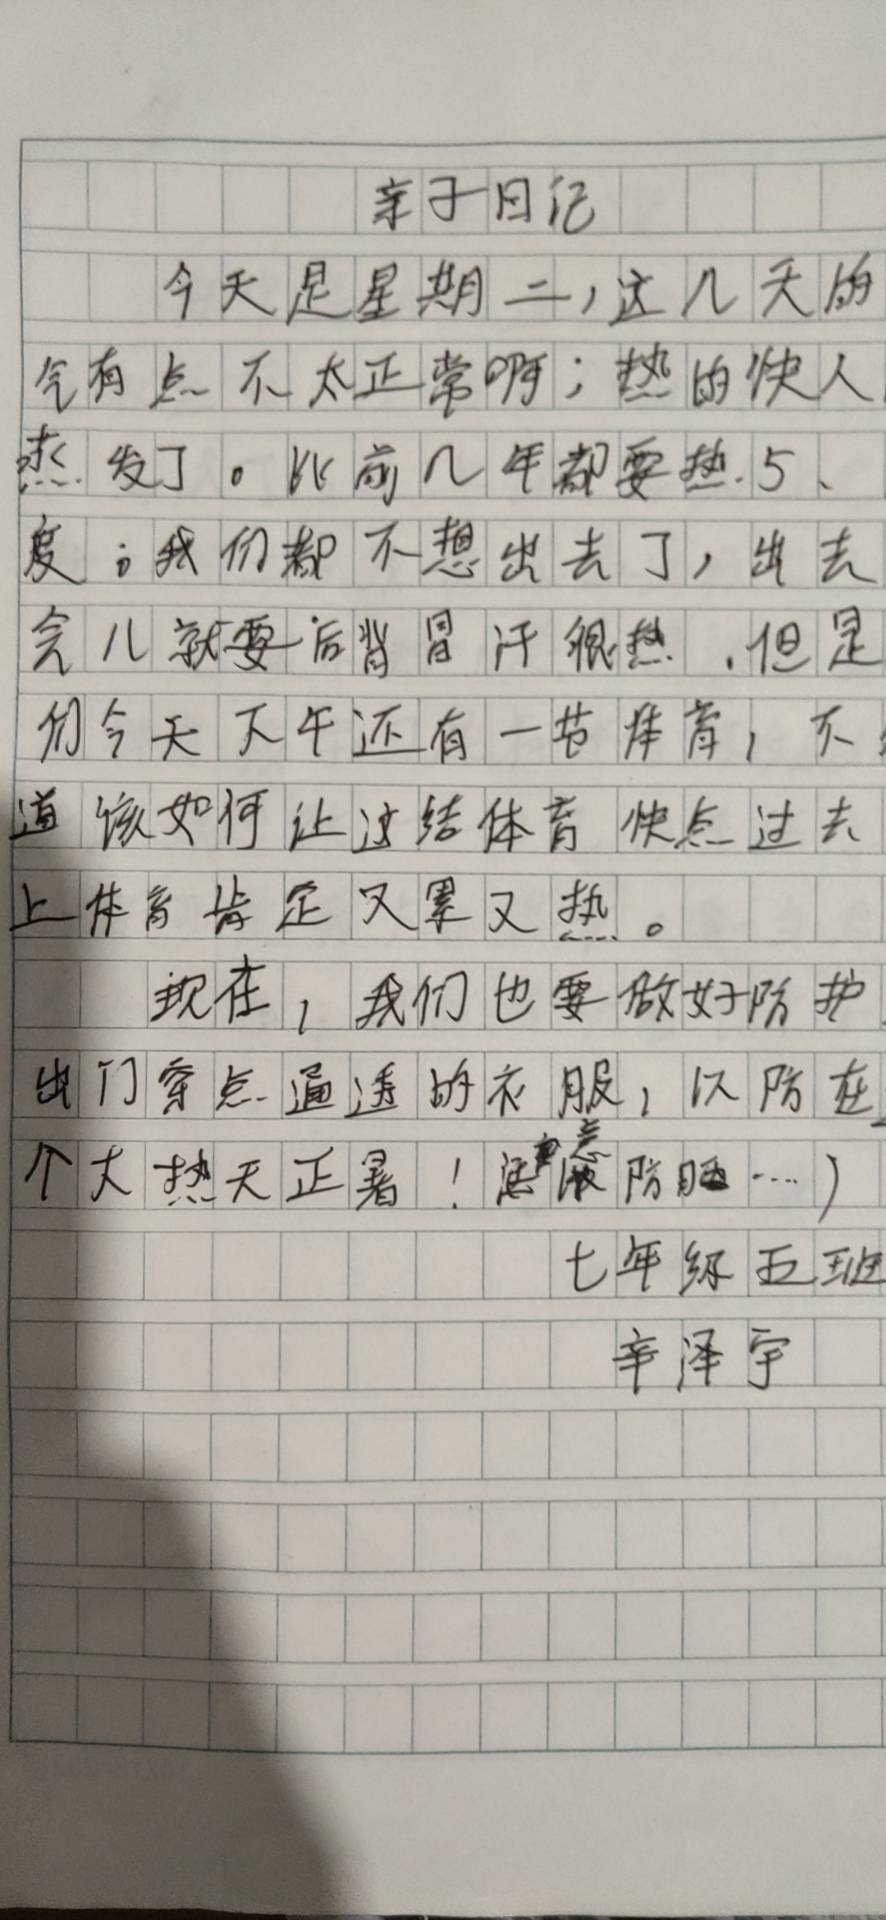 亲子日记
今天是星期二,这几天的
气有点不太正常啊;热的快人
蒸发了。比前几年都要热5、
度;我们都不想出去了,出去
会儿就要后背冒汗很热.但是
们今天下午还有一节体育,不
道该如何让这结体育快点过去
上体育肯定又累又热。
现在,我们也要做好防护
出门穿点通透的衣服,以防在
个大热天正暑!注意防晒…)
七年级五班
辛泽宇